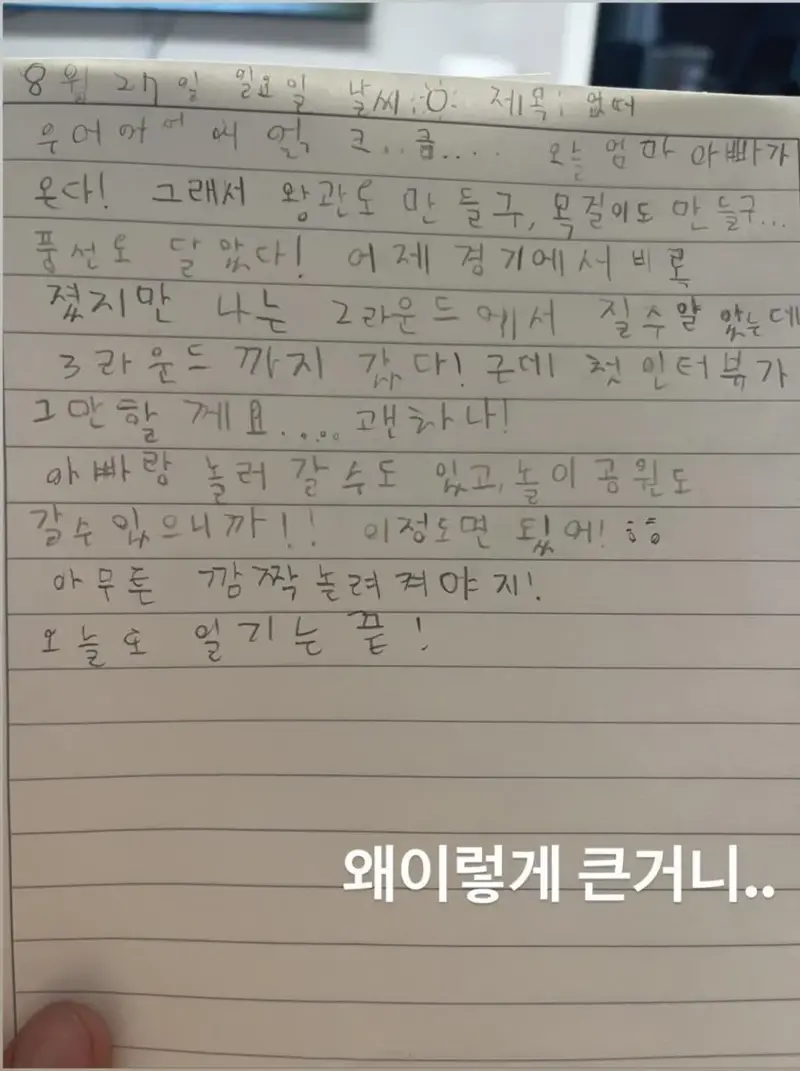 8월 27일 일요일 날씨: 제목: 없떠
우어어어에에 얽 크..큼.... 오늘 엄마 아빠가
온다! 그래서 왕관도 만들구, 목걸이도 만들구...
풍선도 달았다! 어제 경기에서 비록
졌지만 나는 2라운드에서 질수알았는데
3라운드까지 갔다! 근데 첫 인터뷰가
그만할게요..... 괜차나!
아빠랑 놀러갈수도 있고, 놀이공원도
갈수있으니까!! 이정도면 됬어! ㅎㅎ
아무튼 깜짝놀려켜야지!
오늘도 일기는 끝!
왜이렇게 큰거니..